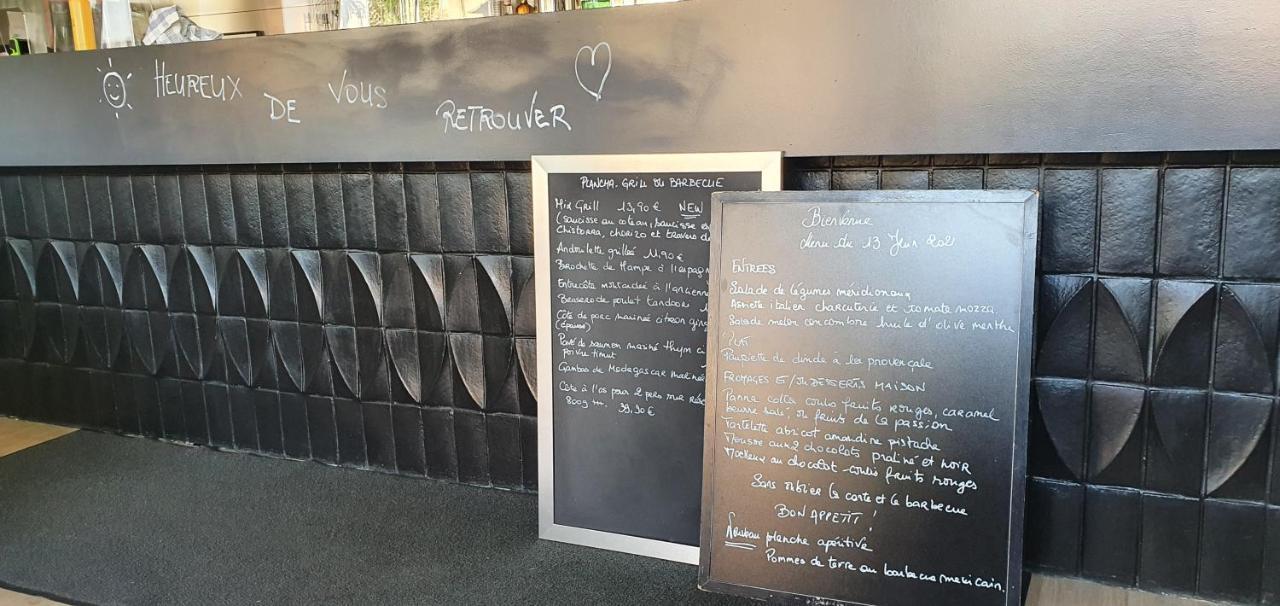 HEUREUX DE VOUS RETROUVER
PLANCHA. GRILL OU BARBECUE
Mix Grill 13,90 € NEW
(saucisse au coteau, saucisse
Chistorra, chorizo et travers de
Andouillette grillée 11,90 €
Brochette de Hampe à l'espagn
Entrecôte marinade à l'ancienne
Brasero de poulet tandoori
Côte de porc marinée citron ging
(épaisse)
Pavé de saumon mariné thym ci
poivre timut
Gambas de Madagascar marinée
Côte à l'os pour 2 pers
800g 39,90 €
Bienvenue
Menu du 13 Juin 2021
ENTREES
Salade de légumes méridionaux
Assiette italien charcuterie et tomate mozza
Salade melon concombre huile d'olive menthe
PLAT
Paupiette de dinde à la provençale
FROMAGES ET/OU DESSERTS MAISON
Panna cotta coulis fruits rouges, caramel
beurre salé, ou fruits de la passion
Tartelette abricot amandine pistache
Mousse aux 2 chocolats praliné et noir
Moelleux au chocolat coulis fruits rouges
Sans oublier la carte et le barbecue
BON APPETIT !
Nouveau planche apéritive
Pommes de terre au barbecue mexicain.